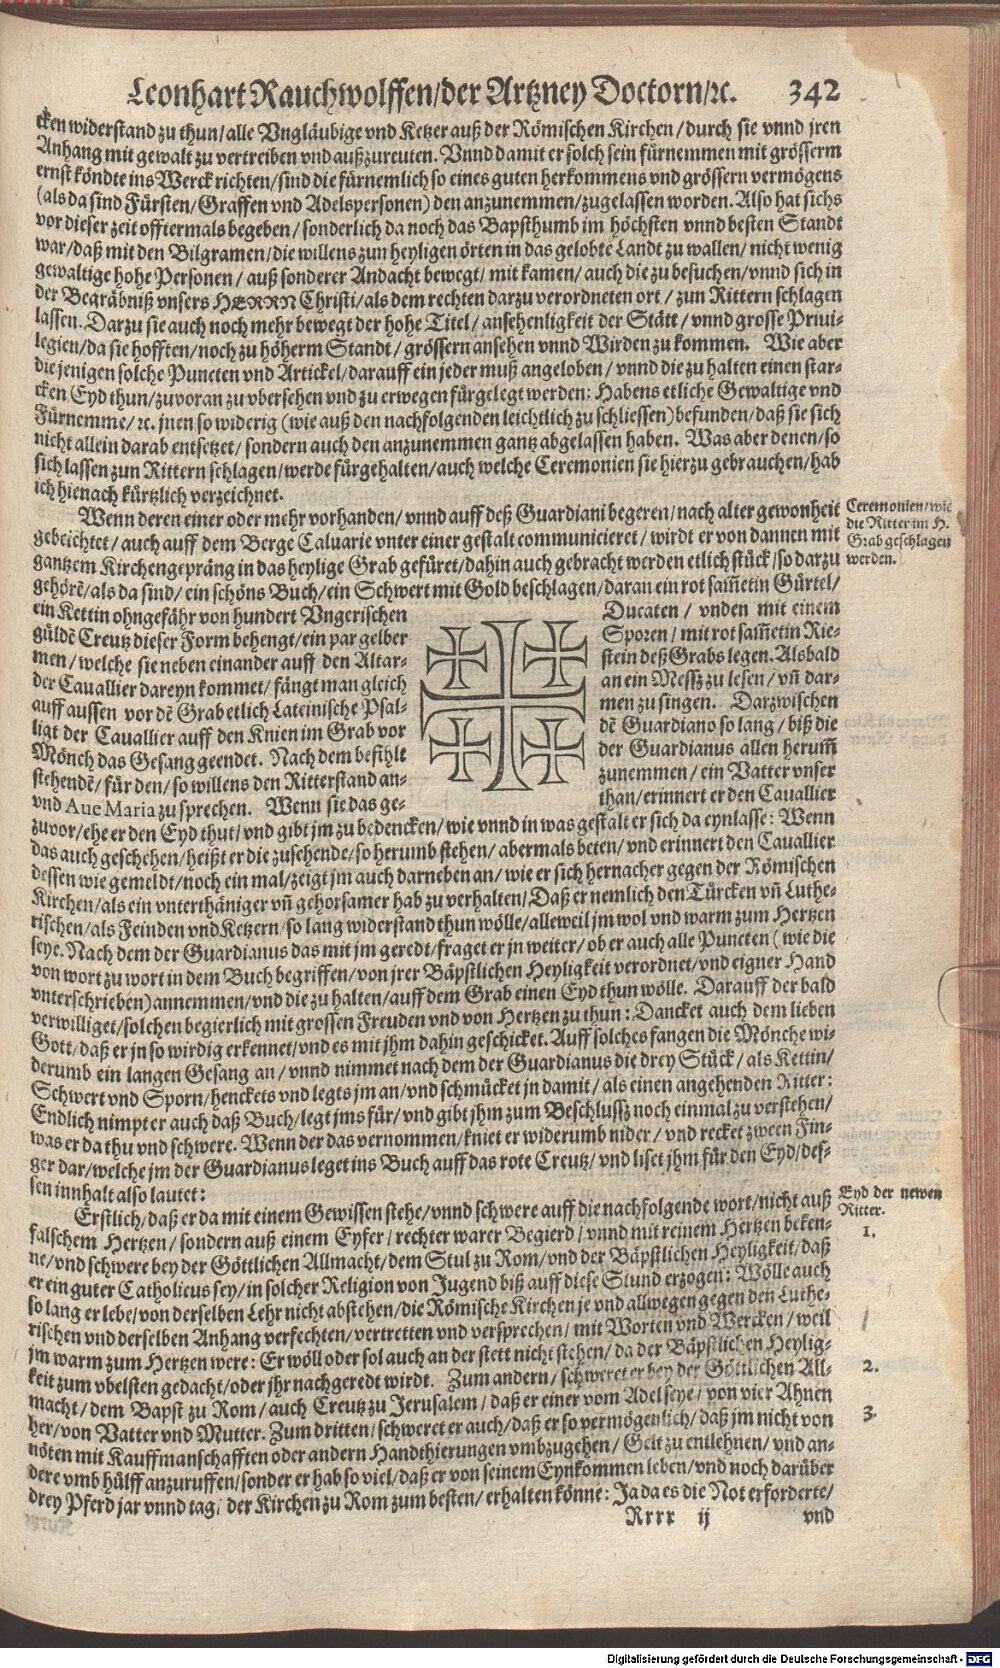 Leonhart Rauchwolffen/der Artzney Doctorn/ꝛc. 342
cken widerstand zu thun/alle Vngläubige vnd Ketzer auß der Römischen Kirchen/durch sie vnnd jren
Anhang mit gewalt zu vertreiben vnd außzureuten. Vnnd damit er solch sein fürnemmen mit grösserm
ernst köndte ins Werck richten/sind die fürnemlich so eines guten herkommens vnd grössern vermögens
(als da sind Fürsten/Graffen vnd Adelspersonen) den anzunemmen/zugelassen worden. Also hat sichs
vor dieser zeit offtermals begeben/sonderlich da noch das Bapsthumb im höchsten vnnd besten Standt
war/daß mit den Bilgramen/die willens zun heyligen örten in das gelobte Landt zu wallen/nicht wenig
gewaltige hohe Personen/auß sonderer Andacht bewegt/mit kamen/auch die zu besuchen/vnnd sich in
der Begräbniß vnsers HERRN Christi/als dem rechten darzu verordneten ort/zun Rittern schlagen
lassen. Darzu sie auch noch mehr bewegt der hohe Titel/ansehenligkeit der Stätt/vnnd grosse Priui-
legien/da sie hofften/noch zu höherm Standt/grössern ansehen vnnd Wirden zu kommen. Wie aber
die jenigen solche Puncten vnd Artickel/darauff ein jeder muß angeloben/vnnd die zu halten einen star-
cken Eyd thun/zuvoran zu vbersehen vnd zu erwegen fürgelegt werden: Habens etliche Gewaltige vnd
Fürnemme/ꝛc. jnen so widerig (wie auß den nachfolgenden leichtlich zu schliessen) befunden/daß sie sich
nicht allein darab entsetzet/sondern auch den anzunemmen gantz abgelassen haben. Was aber denen/so
sich lassen zun Rittern schlagen/werde fürgehalten/auch welche Ceremonien sie hierzu gebrauchen/hab
ich hienach kürtzlich verzeichnet.
Wenn deren einer oder mehr vorhanden/vnnd auff deß Guardiani begeren/nach alter gewonheit
gebeichtet/auch auff dem Berge Caluarie vnter einer gestalt communicieret/wirdt er von dannen mit
gantzem Kirchengepräng in das heylige Grab gefüret/dahin auch gebracht werden etlich stück/so darzu
gehörẽ/als da sind/ein schöns Buch/ein Schwert mit Gold beschlagen/daran ein rot sam̃etin Gürtel/
Ceremonien/wie
die Ritter im H.
Grab geschlagen
werden.
ein Kettin ohngefähr von hundert Vngerischen Ducaten/vnden mit einem
güldẽ Creutz dieser Form behengt/ein par gelber Sporen/mit rot sam̃etin Rie-
men/welche sie neben einander auff den Altar- stein deß Grabs legen. Alsbald
der Cauallier dareyn kommet/fängt man gleich an ein Messz zu lesen/vñ dar-
auff aussen vor dẽ Grab etlich Lateinische Psal- men zu singen. Darzwischen
ligt der Cauallier auff den Knien im Grab vor dẽ Guardiano so lang/biß die
Mönch das Gesang geendet. Nach dem befihlt der Guardianus allen herum̃
stehendẽ/für den/so willens den Ritterstand an- zunemmen/ein Vatter vnser
vnd Aue Maria zu sprechen. Wenn sie das ge- than/erinnert er den Cauallier
zuvor/ehe er den Eyd thut/vnd gibt jm zu bedencken/wie vnnd in was gestalt er sich da eynlasse: Wenn
das auch geschehen/heißt er die zusehende/so herumb stehen/abermals beten/vnd erinnert den Cauallier
dessen wie gemeldt/noch ein mal/zeigt jm auch darneben an/wie er sich hernacher gegen der Römischen
Kirchen/als ein vnterthäniger vñ gehorsamer hab zu verhalten/Daß er nemlich den Türcken vñ Luthe-
rischen/als Feinden vnd Ketzern/so lang widerstand thun wölle/alleweil jm wol vnd warm zum Hertzen
seye. Nach dem der Guardianus das mit jm geredt/fraget er jn weiter/ob er auch alle Puncten (wie die
von wort zu wort in dem Buch begriffen/von jrer Bäpstlichen Heyligkeit verordnet/vnd eigner Hand
vnterschrieben) annemmen/vnd die zu halten/auff dem Grab einen Eyd thun wölle. Darauff der bald
verwilliget/solchen begierlich mit grossen Freuden vnd von Hertzen zu thun: Dancket auch dem lieben
Gott/daß er jn so wirdig erkennet/vnd es mit jhm dahin geschicket. Auff solches fangen die Mönche wi-
derumb ein langen Gesang an/vnnd nimmet nach dem der Guardianus die drey Stück/als Kettin/
Schwert vnd Sporn/henckets vnd legts jm an/vnd schmücket jn damit/als einen angehenden Ritter:
Endlich nimpt er auch daß Buch/legt jms für/vnd gibt jhm zum Beschlussz noch einmal zu verstehen/
was er da thu vnd schwere. Wenn der das vernommen/kniet er widerumb nider/vnd recket zween Fin-
ger dar/welche jm der Guardianus leget ins Buch auff das rote Creutz/vnd liset jhm für den Eyd/des-
sen innhalt also lautet:
Eyd der newen
Ritter.
Erstlich/daß er da mit einem Gewissen stehe/vnnd schwere auff die nachfolgende wort/nicht auß
falschem Hertzen/sondern auß einem Eyfer/rechter warer Begierd/vnnd mit reinem Hertzen beken- 1.
ne/vnd schwere bey der Göttlichen Allmacht/dem Stul zu Rom/vnd der Bäpstlichen Heyligkeit/daß
er ein guter Catholicus sey/in solcher Religion von Jugend biß auff diese Stund erzogen: Wölle auch
so lang er lebe/von derselben Lehr nicht abstehen/die Römische Kirchen je vnd allwegen gegen den Luthe-
rischen vnd derselben Anhang verfechten/vertretten vnd versprechen/mit Worten vnd Wercken/weil
jm warm zum Hertzen were: Er wöll oder sol auch an der stett nicht stehen/da der Bäpstlichen Heylig-
keit zum vbelsten gedacht/oder jhr nachgeredt wirdt. Zum andern/schweret er bey der Göttlichen All- 2.
macht/dem Bapst zu Rom/auch Creutz zu Jerusalem/daß er einer vom Adel seye/von vier Ahnen
her/von Vatter vnd Mutter. Zum dritten/schweret er auch/daß er so vermögenlich/daß jm nicht von 3.
nöten mit Kauffmanschafften oder andern Handthierungen vmbzugehen/Gelt zu entlehnen/vnd an-
dere vmb hülff anzuruffen/sonder er hab so viel/daß er von seinem Eynkommen leben/vnd noch darüber
drey Pferd jar vnnd tag/der Kirchen zu Rom zum besten/erhalten könne: Ja da es die Not erforderte/
Rrrr ij vnd
Digitalisierung gefördert durch die Deutsche Forschungsgemeinschaft - DFG